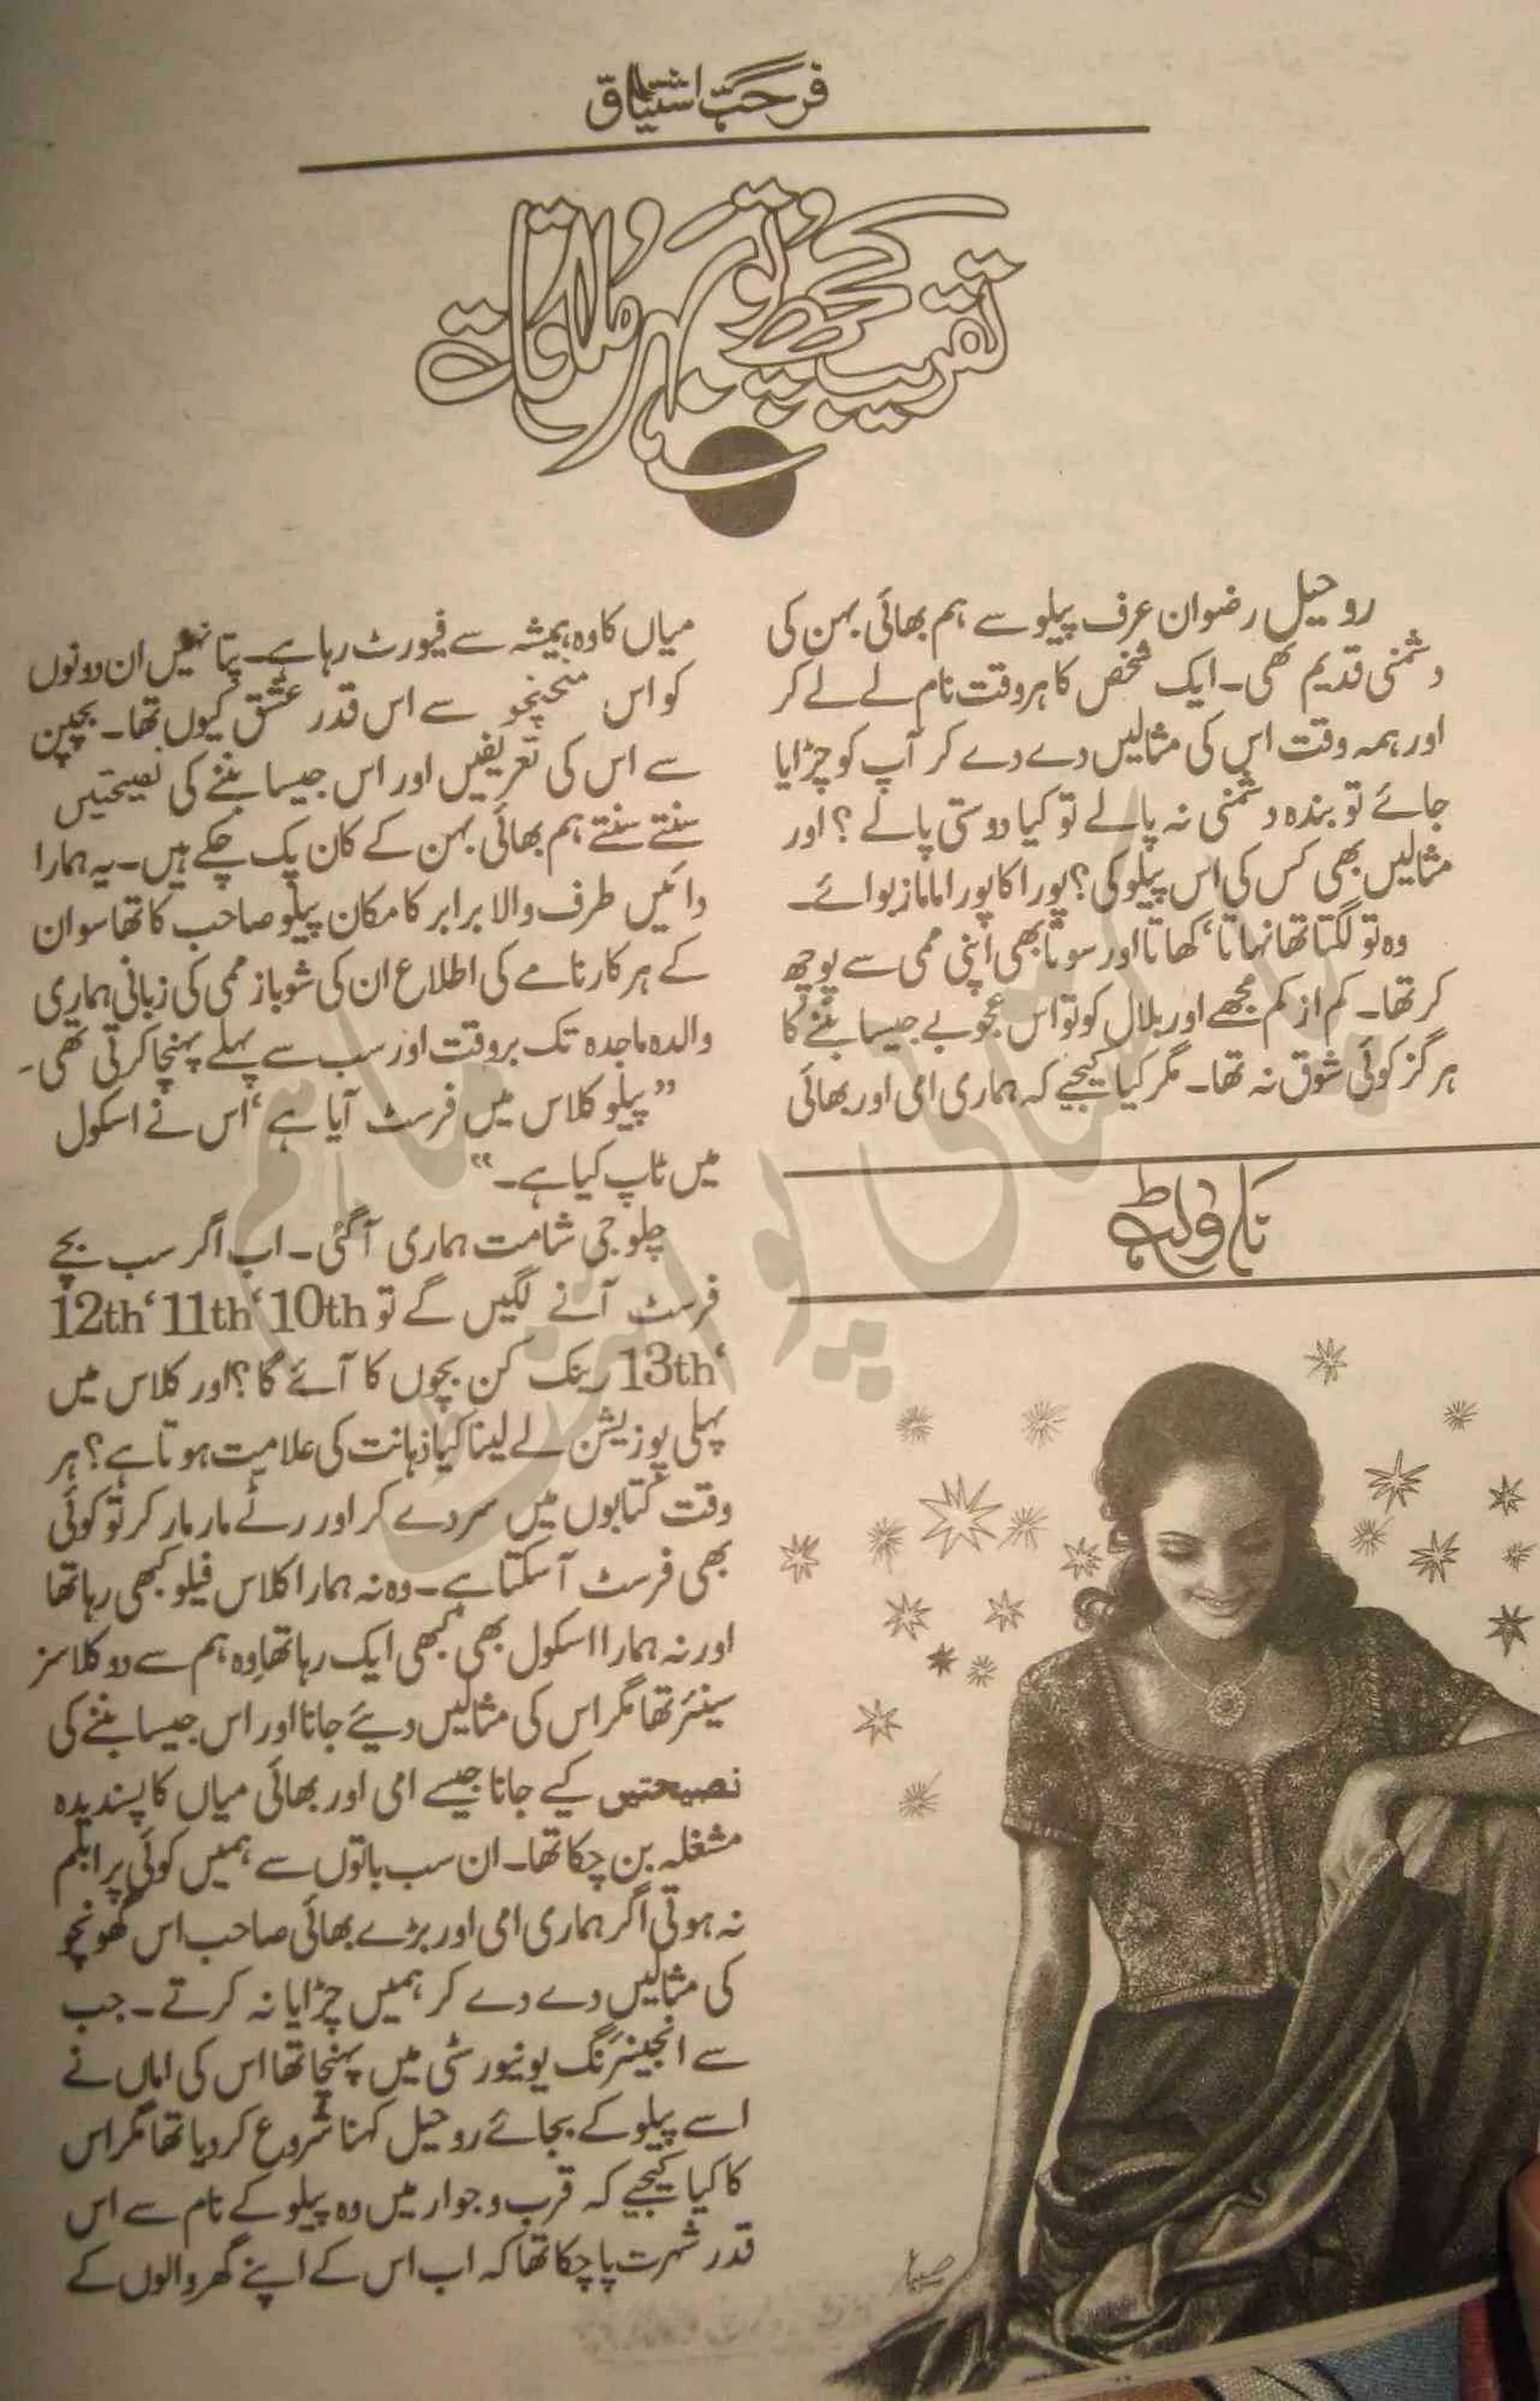 فرحت اشتیاق
تقریب کچھ تو بہرِ ملاقات
روحیل رضوان عرف پپلو سے ہم بھائی بہن کی
دشمنی قدیم تھی۔ ایک شخص کا ہر وقت نام لے لے کر
اور ہمہ وقت اس کی مثالیں دے دے کر آپ کو چڑایا
جائے تو بندہ دشمنی نہ پالے تو کیا دوستی پالے؟ اور
مثالیں بھی کس کی اس پپلو کی؟ پورا کا پورا ماماز بوائے۔
وہ تو لگتا تھا نہاتا‘ کھاتا اور سوتا بھی اپنی ممی سے پوچھ
کر تھا۔ کم از کم مجھے اور بلال کو تو اس عجوبے جیسا بننے کا
ہرگز کوئی شوق نہ تھا۔ مگر کیا کیجیے کہ ہماری امی اور بھائی
ناولٹ
میاں کا وہ ہمیشہ سے فیورٹ رہا ہے۔ پتا نہیں ان دونوں
کو اس سے اس قدر عشق کیوں تھا۔ بچپن
سے اس کی تعریفیں اور اس جیسا بننے کی نصیحتیں
سنتے سنتے ہم بھائی بہن کے کان پک چکے ہیں۔ یہ ہمارا
دائیں طرف والا برابر کا مکان پپلو صاحب کا تھا سو ان
کے ہر کارنامے کی اطلاع ان کی شوباز ممی کی زبانی ہماری
والدہ ماجدہ تک بروقت اور سب سے پہلے پہنچا کرتی تھی۔
”پپلو کلاس میں فرسٹ آیا ہے‘ اس نے اسکول
میں ٹاپ کیا ہے۔“
چلو جی شامت ہماری آگئی۔ اب اگر سب بچے
فرسٹ آنے لگیں گے تو 10th‘ 11th‘ 12th
‘13th رینک کن بچوں کا آئے گا؟ اور کلاس میں
پہلی پوزیشن لے لینا کیا ذہانت کی علامت ہوتا ہے؟ ہر
وقت کتابوں میں سر دے کر اور رٹے مار مار کر تو کوئی
بھی فرسٹ آسکتا ہے۔ وہ نہ ہمارا کلاس فیلو کبھی رہا تھا
اور نہ ہمارا اسکول بھی کبھی ایک رہا تھا وہ ہم سے دو کلاسز
سینئر تھا مگر اس کی مثالیں دیئے جانا اور اس جیسا بننے کی
نصیحتیں کیے جانا جیسے امی اور بھائی میاں کا پسندیدہ
مشغلہ بن چکا تھا۔ ان سب باتوں سے ہمیں کوئی پرابلم
نہ ہوتی اگر ہماری امی اور بڑے بھائی صاحب اس گھونچو
کی مثالیں دے دے کر ہمیں چڑایا نہ کرتے۔ جب
سے انجینئرنگ یونیورسٹی میں پہنچا تھا اس کی اماں نے
اسے پپلو کے بجائے روحیل کہنا شروع کردیا تھا مگر اس
کا کیا کیجیے کہ قرب و جوار میں وہ پپلو کے نام سے اس
قدر شہرت پاچکا تھا کہ اب اس کے اپنے گھر والوں کے
صبا